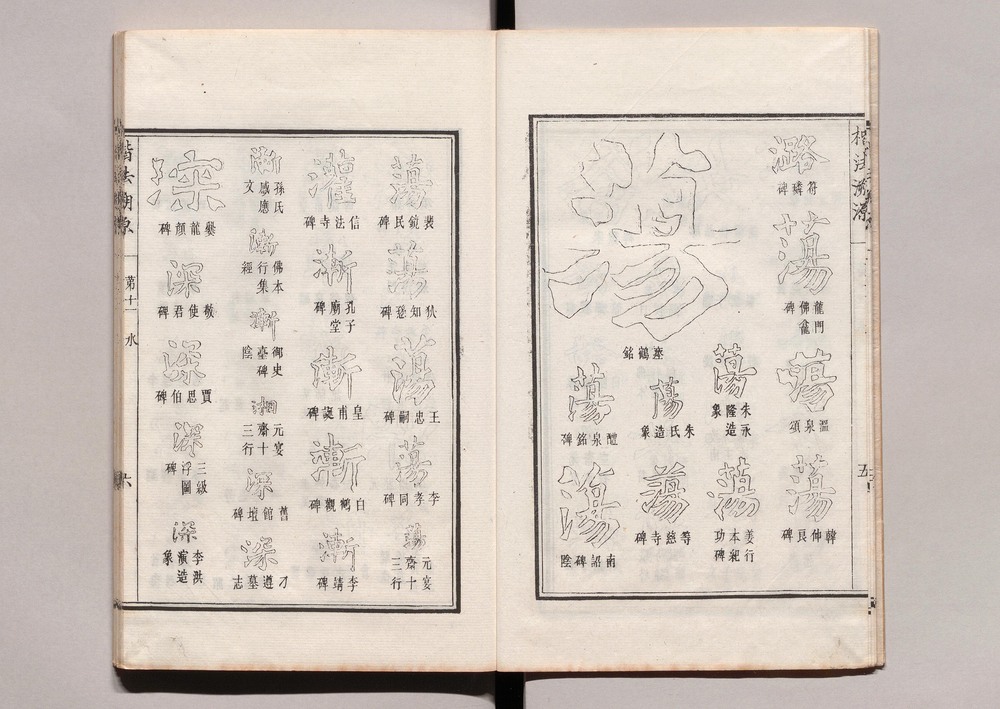 楷法溯源
五
潞
符璘碑
蕩
龍門佛龕碑
蕩
溫泉頌
蕩
韓仲良碑
蕩
瘞鶴銘
蕩
朱永隆造象
蕩
姜行本紀功碑
蕩
朱氏造象
蕩
等慈寺碑
蕩
醴泉銘碑
蕩
南詔碑陰
蕩
裴鏡民碑
蕩
狄知愻碑
蕩
王忠嗣碑
蕩
李孝同碑
蕩
元宴齋十三行
灌
信法寺碑
漸
孔子廟堂碑
漸
皇甫誕碑
漸
白鶴觀碑
漸
李靖碑
漸
孫氏感應文
漸
佛本行集經
漸
御史臺碑陰
湘
元宴齋十三行
深
舊館壇碑
深
刁遵墓志
深
爨龍顏碑
深
敬使君碑
深
賈思伯碑
深
三級浮圖碑
深
李洪演造象
楷法溯源
第十一 水
六